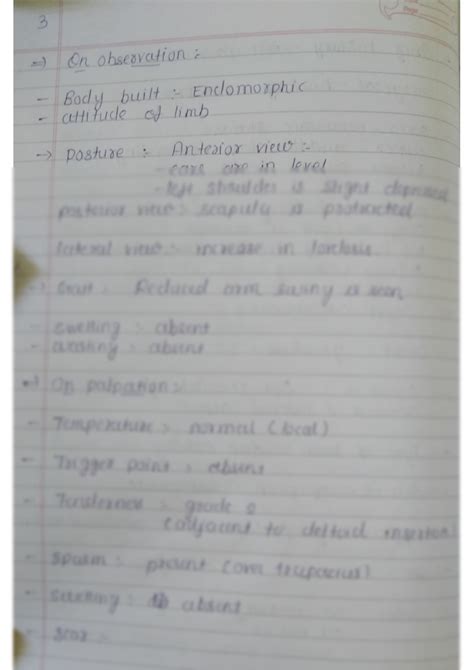 3
=) On observation :-
- Body built :- Endomorphic
- attitude of limb
-> Posture :- Anterior view :-
- ears are in level
- left shoulder is slight depressed
posterior view :- scapula is protracted
lateral view :- increase in lordosis
-> Gait : Reduced arm swing is seen
- swelling : absent
- wasting : absent
=) On palpation :-
- Temperature :- normal (local)
- Trigger point : absent
- Tenderness : grade 2
(adjacent to deltoid insertion)
- Spasm :- present (over trapezius)
- Swelling : absent
- scar :